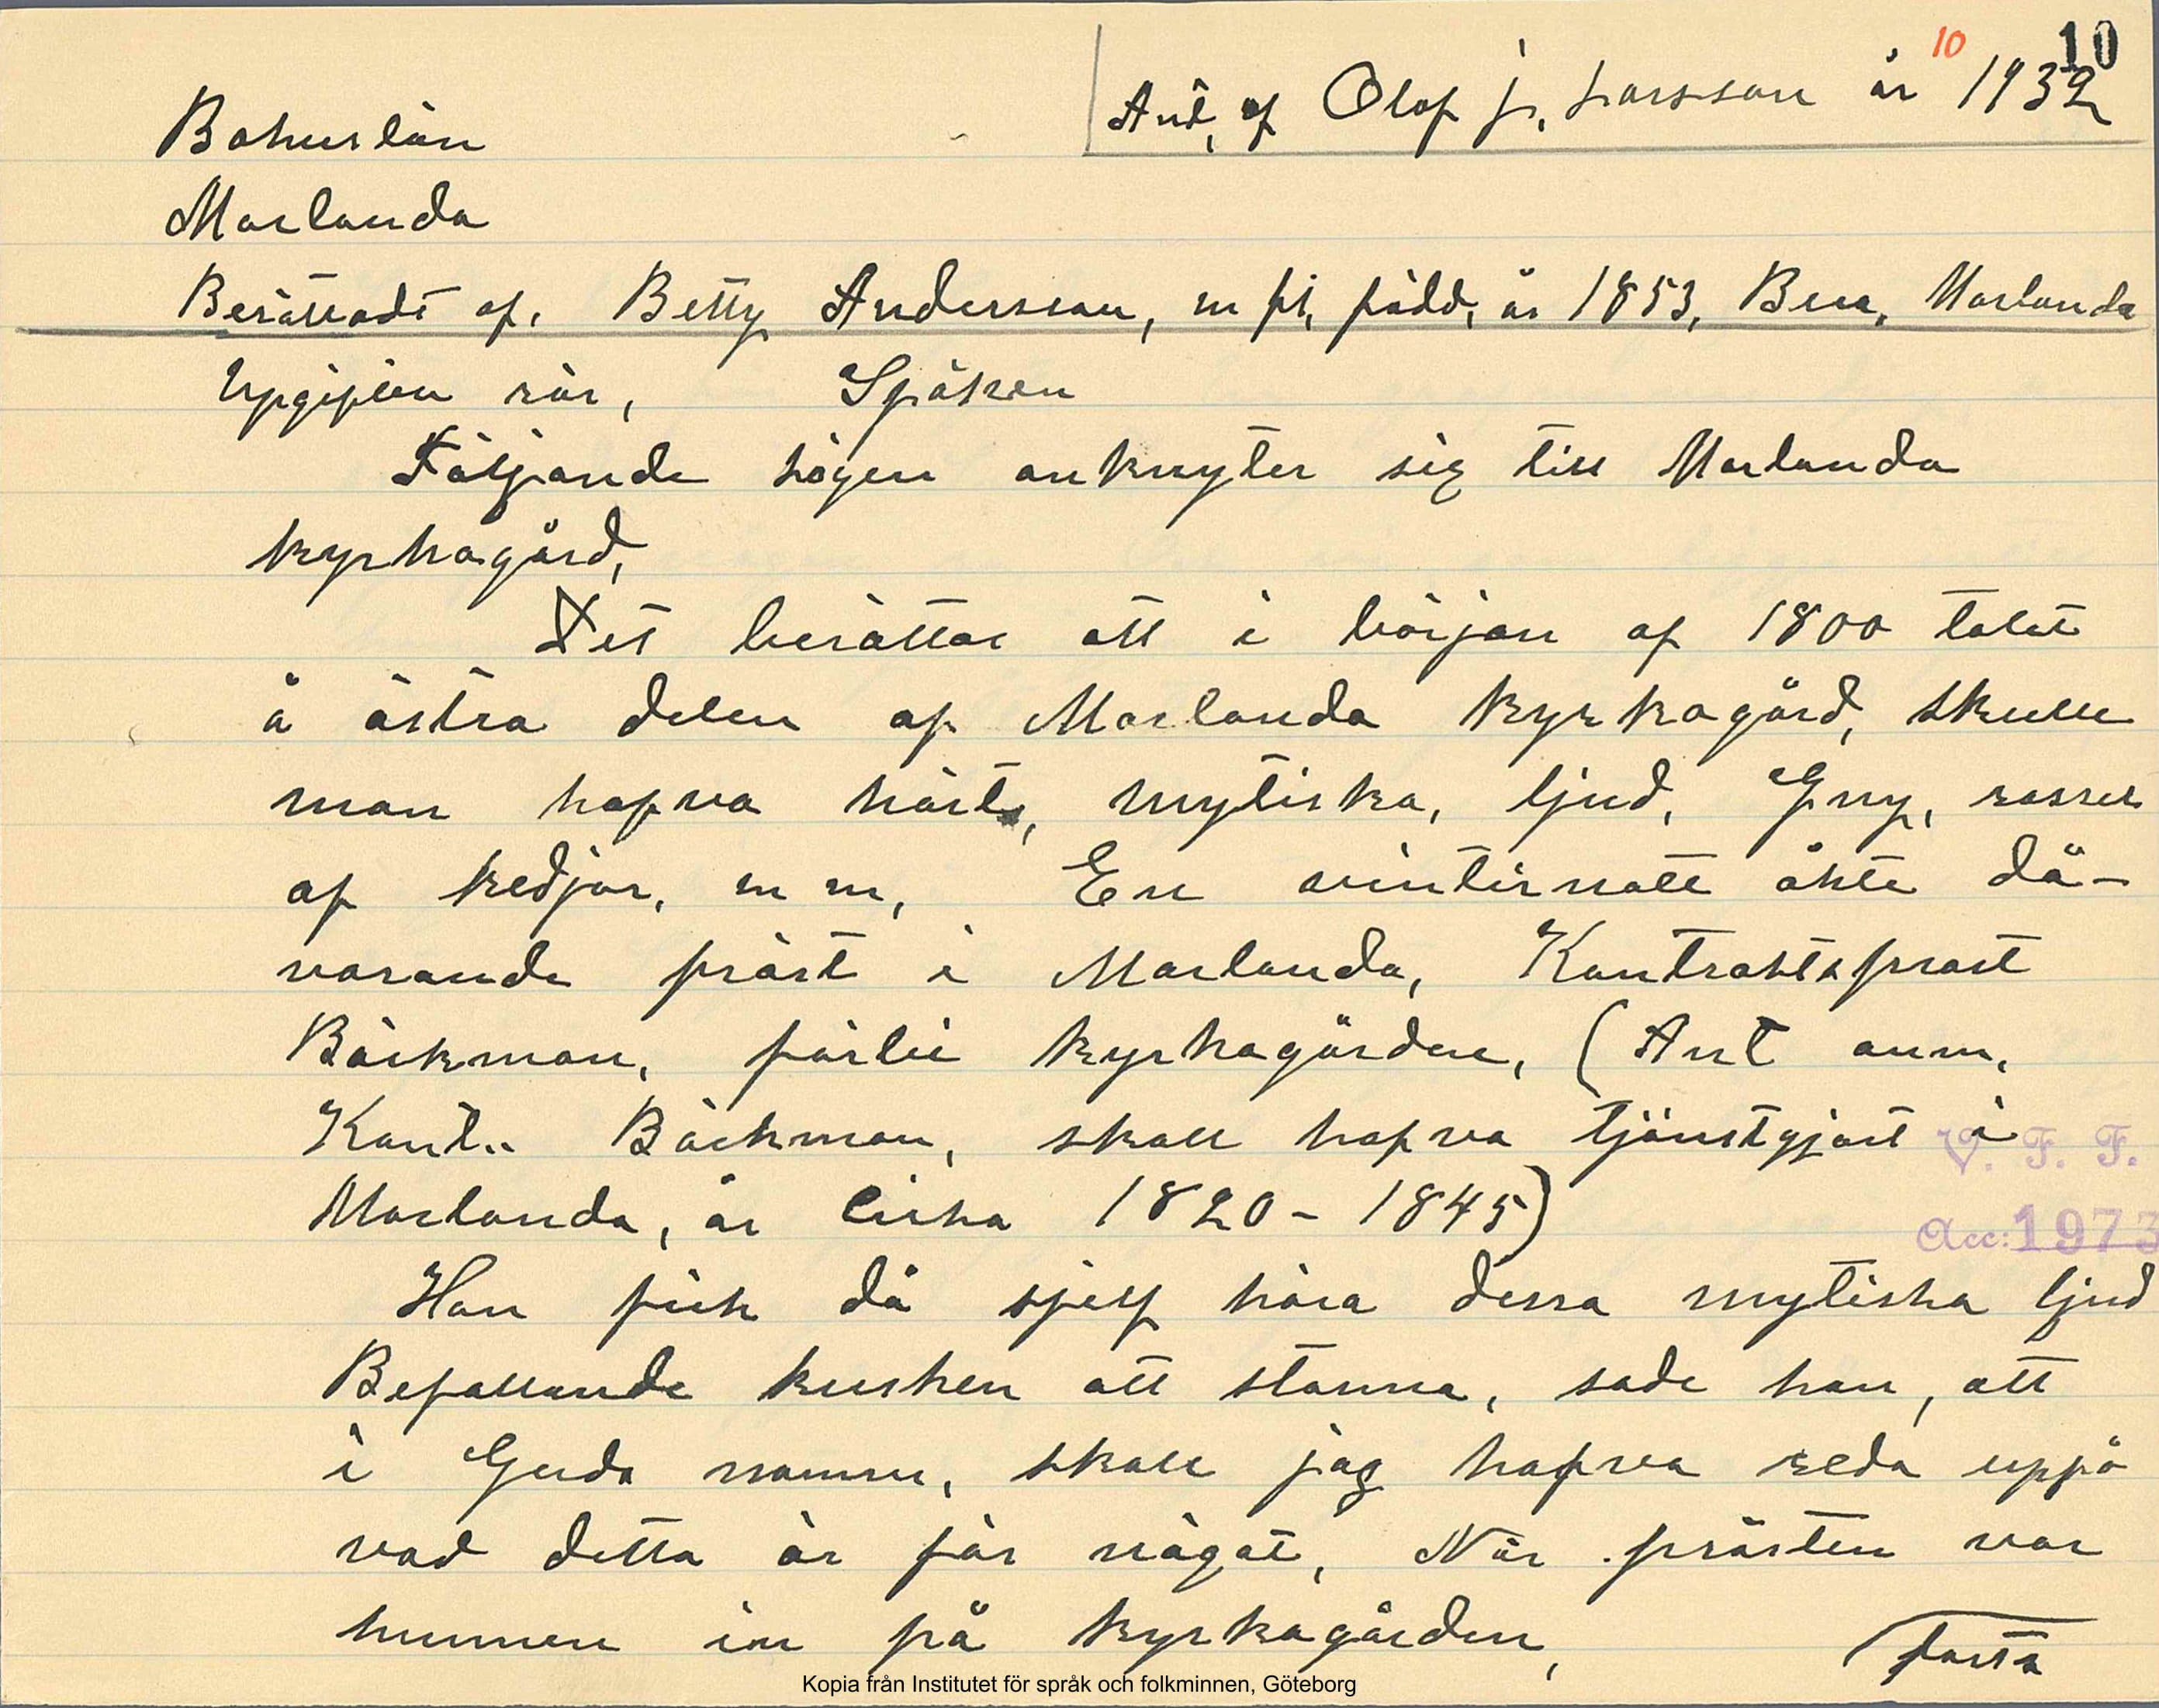 10 10
Ant, af Olof j, Larsson år 1932
Bohuslän
Morlanda
Berättadt af, Betty Andersson, m fl, född, år 1853, Bua, Morlanda
Upgiften rör, Spöken
Följande sägen anknyter sig till Morlanda
kyrkogård,
Det berättas att i början af 1800 talet
å östra delen af Morlanda kyrkogård, skulle
man hafva hört, mytiska, ljud, Gny, rassel
af kedjor, m m, En vinternatt åkte då-
varande präst i Morlanda, Kontraktsprost
Bäckman, förbi kyrkogården, (Ant anm,
Kont.. Bäckman, skall hafva tjänstgjort i
Morlanda, år cirka 1820 - 1845)
V. F. F.
Acc: 1973
Han fick då sjelf höra dessa mytiska ljud
Befallande kusken att stanna, sade han, att
i Guds namn, skall jag hafva reda uppå
vad detta är för något, När prästen var
hunnen in på kyrkogården,
forts
Kopia från Institutet för språk och folkminnen, Göteborg